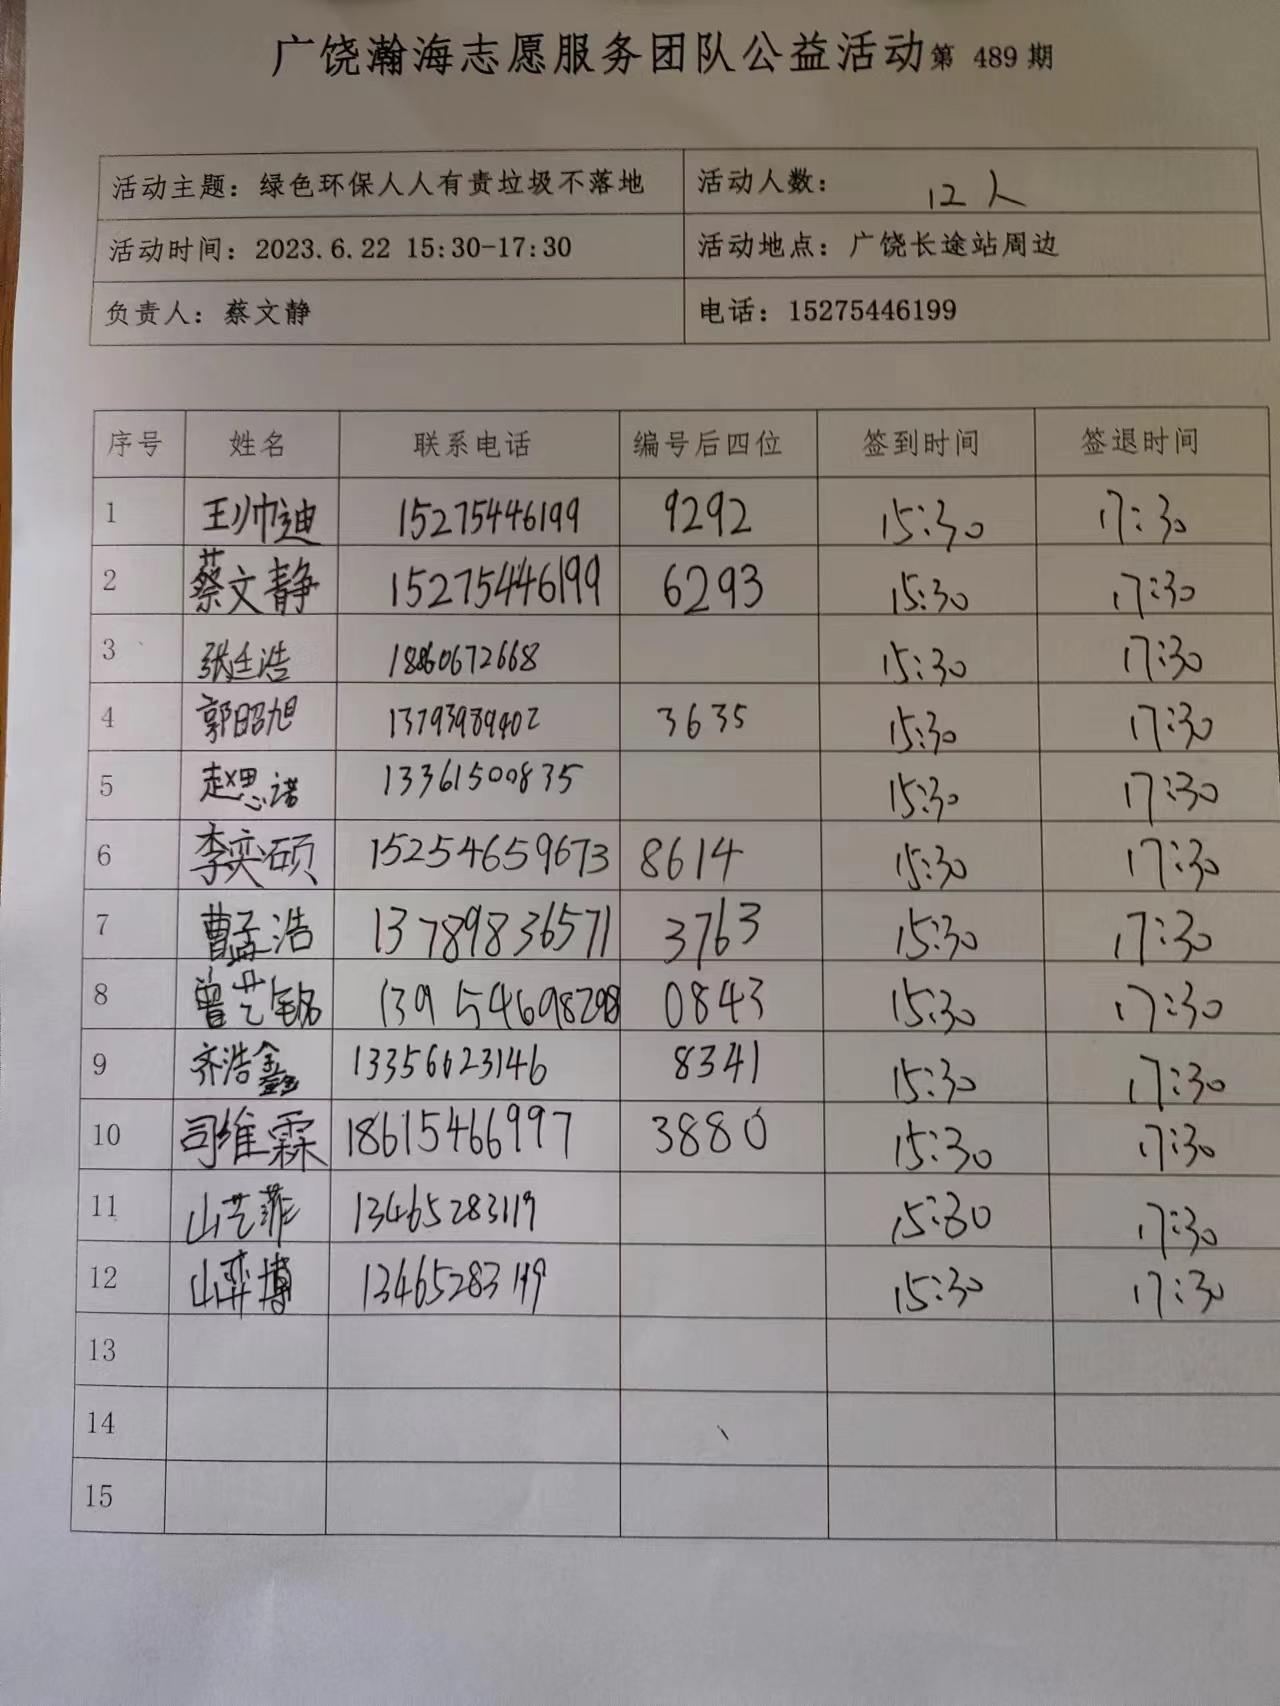 广饶瀚海志愿服务团队公益活动第 489 期
活动主题：绿色环保人人有责垃圾不落地 活动人数： 12人
活动时间：2023.6.22 15:30-17:30 活动地点：广饶长途站周边
负责人：蔡文静 电话：15275446199
序号 姓名 联系电话 编号后四位 签到时间 签退时间
1 王帅迪 15275446199 9292 15:30 17:30
2 蔡文静 15275446199 6293 15:30 17:30
3 张廷浩 18860672668 15:30 17:30
4 郭昭旭 13793989402 3635 15:30 17:30
5 赵思诺 13361500835 15:30 17:30
6 李奕硕 15254659673 8614 15:30 17:30
7 曹孟浩 13789836571 3763 15:30 17:30
8 曾艺铭 0843 15:30 17:30
9 齐浩鑫 13356623146 8341 15:30 17:30
10 司维霖 18615466997 3880 15:30 17:30
11 山艺菲 13465283119 15:30 17:30
12 山弈博 13465283119 15:30 17:30
13
14
15